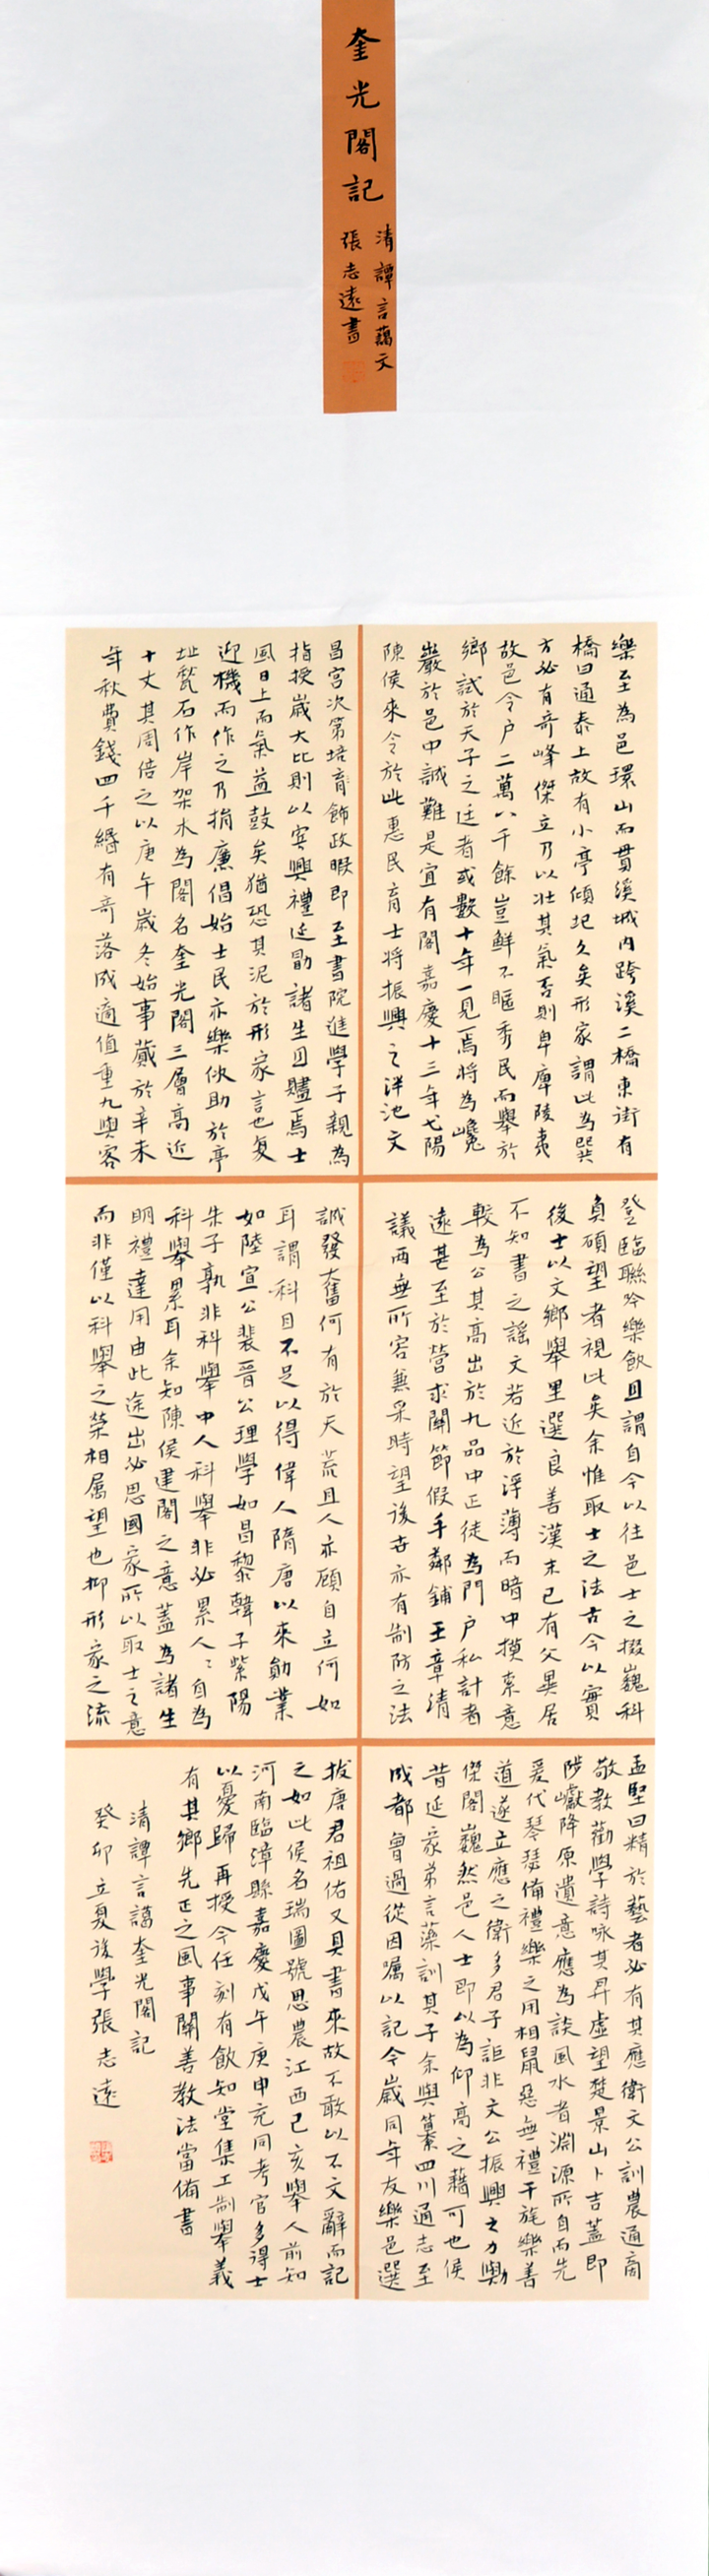 奎光閣記
清譚言藹文
張志遠書
樂至為邑環山而貫溪城內跨溪二橋東街有
橋曰通泰上故有小亭傾圮久矣形家謂此為巽
方必有奇峰傑立乃以壯其氣否則卑庳陵夷
故邑令戶二萬八千餘豈鮮不驅秀民而舉於
鄉試於天子之廷者或數十年一見焉將為巉
巖於邑中誠難是宜有閣嘉慶十三年弋陽
陳侯來令於此惠民育士將振興之泮池文
昌宮次第培育飾政暇即至書院進學子親為
指授歲大比則以賓興禮延勖諸生且贐焉士
風日上而氣益鼓矣猶恐其泥於形家言也复
迎機而作之乃捐廉倡始士民亦樂佽助於亭
址甃石作岸架木為閣名奎光閣三層高近
十丈其周倍之以庚午歲冬始事蕆於辛未
年秋費錢四千緡有奇落成適值重九與客
登臨聯吟樂飲且謂自今以往邑士之掇巍科
負碩望者視此矣余惟取士之法古今以實
後士以文鄉舉里選良善漢末已有父異居
不知書之謠文若近於浮薄而暗中摸索意
較為公其高出於九品中正徒為門戶私計者
遠甚至於營求關節假手鄰鋪王章清
議兩無所容兼采時望後世亦有制防之法
誠發奮何有於天荒且人亦顧自立何如
耳謂科目不足以得偉人隋唐以來勛業
如陸宣公裴晉公理學如昌黎韓子紫陽
朱子孰非科舉中人科舉非必累人〻自為
科舉累耳余知陳侯建閣之意蓋為諸生
明禮達用由此途出必思國家所以取士之意
而非僅以科舉之榮相屬望也抑形家之流
孟堅曰精於藝者必有其應衛文公訓農通商
敬教勸學詩咏其升虛望楚景山卜吉蓋即
陟巘降原遺意應為談風水者淵源所自而先
爰伐琴瑟備禮樂之用相鼠惡無禮干旄樂善
道遂立應之衛多君子詎非文公振興之力歟
傑閣巍然邑人士即以為仰高之藉可也侯
昔延家弟言藻訓其子余與纂四川通志至
成都曾過從因囑以記今歲同年友樂邑選
拔唐君祖佑又具書來故不敢以不文辭而記
之如此侯名瑞圖號思農江西己亥舉人前知
河南臨漳縣嘉慶戊午庚申充同考官多得士
以憂歸再授今任刻有飲知堂集工制舉義
有其鄉先正之風事關善教法當備書
清譚言藹奎光閣記
癸卯立夏後學張志遠